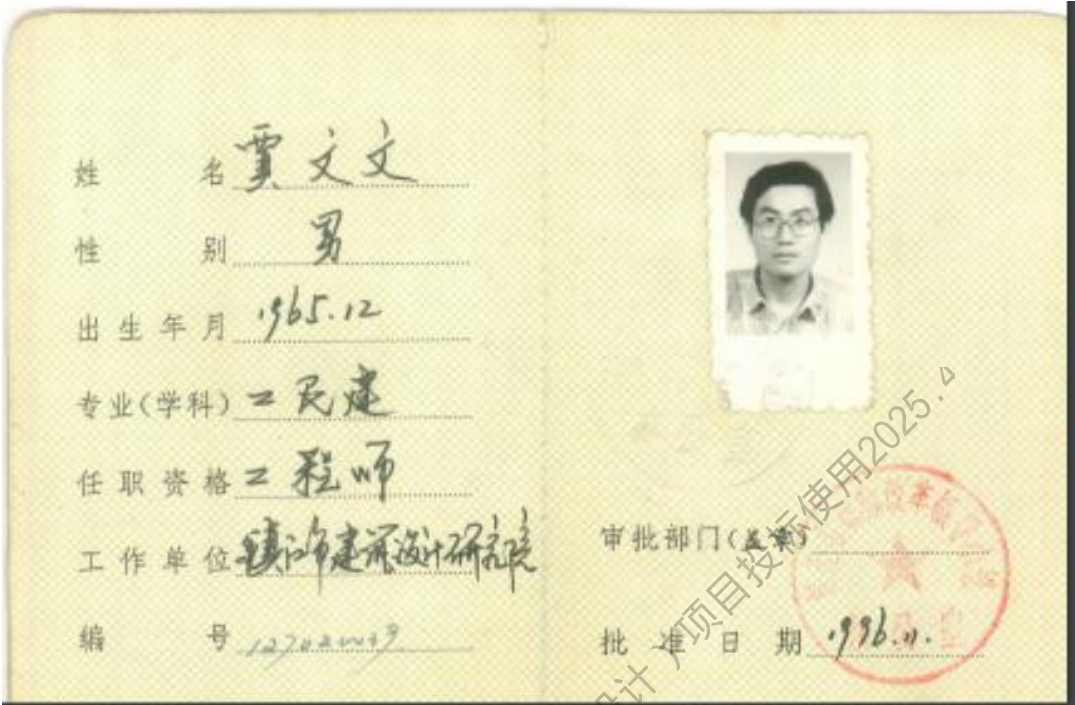 姓名 贾文文
性别 男
出生年月 1965.12
专业(学科) 工民建
任职资格 工程师
工作单位 镇江市建筑设计研究院
编号
审批部门(盖章)
批准日期 1996.11.
设计)项目投标使用2025.4